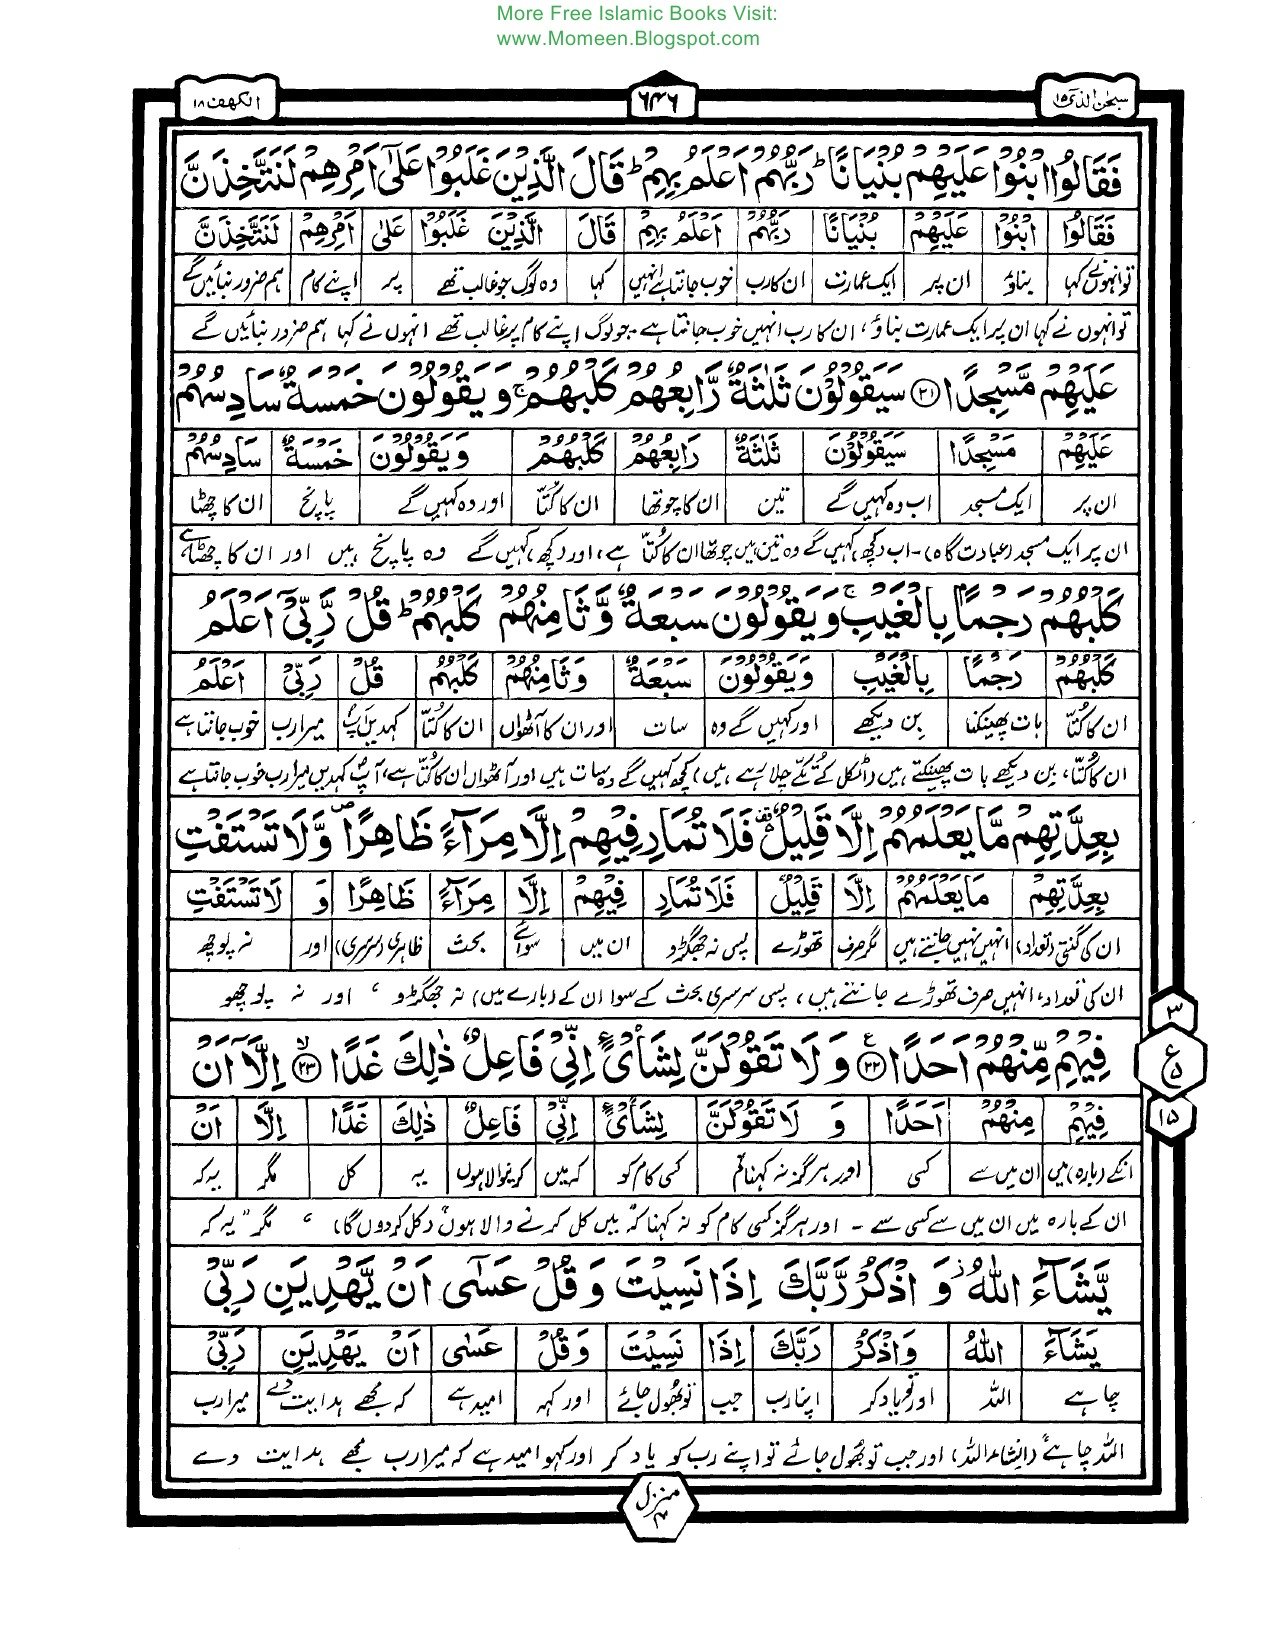 More Free Islamic Books Visit:
www.Momeen.Blogspot.com
سبحٰن الذی ۱۵
۶۴۶
الکھف ۱۸
فَقَالُوا ابْنُوْا عَلَيْهِمْ بُنْيَانًا ؕ رَبُّهُمْ اَعْلَمُ بِهِمْ ؕ قَالَ الَّذِيْنَ غَلَبُوْا عَلٰٓى اَمْرِهِمْ لَنَتَّخِذَنَّ
فَقَالُوا ابْنُوْا عَلَيْهِمْ بُنْيَانًا رَبُّهُمْ اَعْلَمُ بِهِمْ قَالَ الَّذِيْنَ غَلَبُوْا عَلٰٓى اَمْرِهِمْ لَنَتَّخِذَنَّ
تو انہوں نے کہا بناؤ ان پر ایک عمارت ان کا رب خوب جانتا ہے انہیں کہا وہ لوگ جو غالب تھے پر اپنے کام ہم ضرور بنائیں گے
تو انہوں نے کہا ان پر ایک عمارت بناؤ، ان کا رب انہیں خوب جانتا ہے۔ جو لوگ اپنے کام پر غالب تھے انہوں نے کہا ہم ضرور بنائیں گے
عَلَيْهِمْ مَّسْجِدًا ۲۱ سَيَقُوْلُوْنَ ثَلٰثَةٌ رَّابِعُهُمْ كَلْبُهُمْ ۚ وَيَقُوْلُوْنَ خَمْسَةٌ سَادِسُهُمْ
عَلَيْهِمْ مَسْجِدًا سَيَقُوْلُوْنَ ثَلٰثَةٌ رَابِعُهُمْ كَلْبُهُمْ وَيَقُوْلُوْنَ خَمْسَةٌ سَادِسُهُمْ
ان پر ایک مسجد اب وہ کہیں گے تین ان کا چوتھا ان کا کُتّا اور وہ کہیں گے پانچ ان کا چھٹا
ان پر ایک مسجد (عبادت گاہ)۔ اب کچھ کہیں گے وہ تین ہیں چوتھا ان کا کُتّا ہے، اور کچھ کہیں گے وہ پانچ ہیں اور ان کا چھٹا ہے
كَلْبُهُمْ رَجْمًۢا بِالْغَيْبِ ۚ وَيَقُوْلُوْنَ سَبْعَةٌ وَّثَامِنُهُمْ كَلْبُهُمْ ؕ قُلْ رَّبِّيْٓ اَعْلَمُ
كَلْبُهُمْ رَجْمًا بِالْغَيْبِ وَيَقُوْلُوْنَ سَبْعَةٌ وَثَامِنُهُمْ كَلْبُهُمْ قُلْ رَبِّيْٓ اَعْلَمُ
ان کا کُتّا بات پھینکنا بن دیکھے اور کہیں گے وہ سات اور ان کا آٹھواں ان کا کُتّا کہدیں آپ میرا رب خوب جانتا ہے
ان کا کُتّا، بن دیکھے بات پھینکتے ہیں (اٹکل کے تکے چلا رہے ہیں) کچھ کہیں گے وہ سات ہیں اور آٹھواں ان کا کُتّا ہے، آپ کہدیں میرا رب خوب جانتا ہے
بِعِدَّتِهِمْ مَّا يَعْلَمُهُمْ اِلَّا قَلِيْلٌ ۫ فَلَا تُمَارِ فِيْهِمْ اِلَّا مِرَآءً ظَاهِرًا ۪ وَّلَا تَسْتَفْتِ
بِعِدَّتِهِمْ مَا يَعْلَمُهُمْ اِلَّا قَلِيْلٌ فَلَا تُمَارِ فِيْهِمْ اِلَّا مِرَآءً ظَاهِرًا وَ لَا تَسْتَفْتِ
ان کی گنتی (تعداد) انہیں نہیں جانتے ہیں مگر صرف تھوڑے پس نہ جھگڑو ان میں سوائے بحث ظاہری (سرسری) اور نہ پوچھ
ان کی تعداد، انہیں صرف تھوڑے جانتے ہیں، پس سرسری بحث کے سوا ان کے (بارے میں) نہ جھگڑو، اور نہ پوچھو
فِيْهِمْ مِّنْهُمْ اَحَدًا ۲۲ وَلَا تَقُوْلَنَّ لِشَايْءٍ اِنِّيْ فَاعِلٌ ذٰلِكَ غَدًا ۲۳ اِلَّآ اَنْ
فِيْهِمْ مِنْهُمْ اَحَدًا وَ لَا تَقُوْلَنَّ لِشَايْءٍ اِنِّيْ فَاعِلٌ ذٰلِكَ غَدًا اِلَّآ اَنْ
انکے (بارہ) میں ان میں سے کسی اور ہرگز نہ کہنا تم کسی کام کو کہ میں کرنیوالا ہوں یہ کل مگر یہ کہ
ان کے بارہ میں ان میں سے کسی سے ۔ اور ہرگز کسی کام کو نہ کہنا کہ "میں کل کرنے والا ہوں" (کل کر دوں گا) ، مگر "یہ کہ
يَّشَآءَ اللّٰهُ ۫ وَاذْكُرْ رَّبَّكَ اِذَا نَسِيْتَ وَقُلْ عَسٰٓى اَنْ يَّهْدِيَنِ رَبِّيْ
يَشَآءَ اللّٰهُ وَاذْكُرْ رَبَّكَ اِذَا نَسِيْتَ وَقُلْ عَسٰٓى اَنْ يَهْدِيَنِ رَبِّيْ
چاہے اللہ اور تو یاد کر اپنا رب جب تو بھول جائے اور کہہ امید ہے کہ مجھے ہدایت دے میرا رب
اللہ چاہے" (انشاء اللہ)، اور جب تو بھول جائے تو اپنے رب کو یاد کر اور کہو امید ہے کہ میرا رب مجھے ہدایت دے
۳
ع
۵
۱۵
منزل ۴